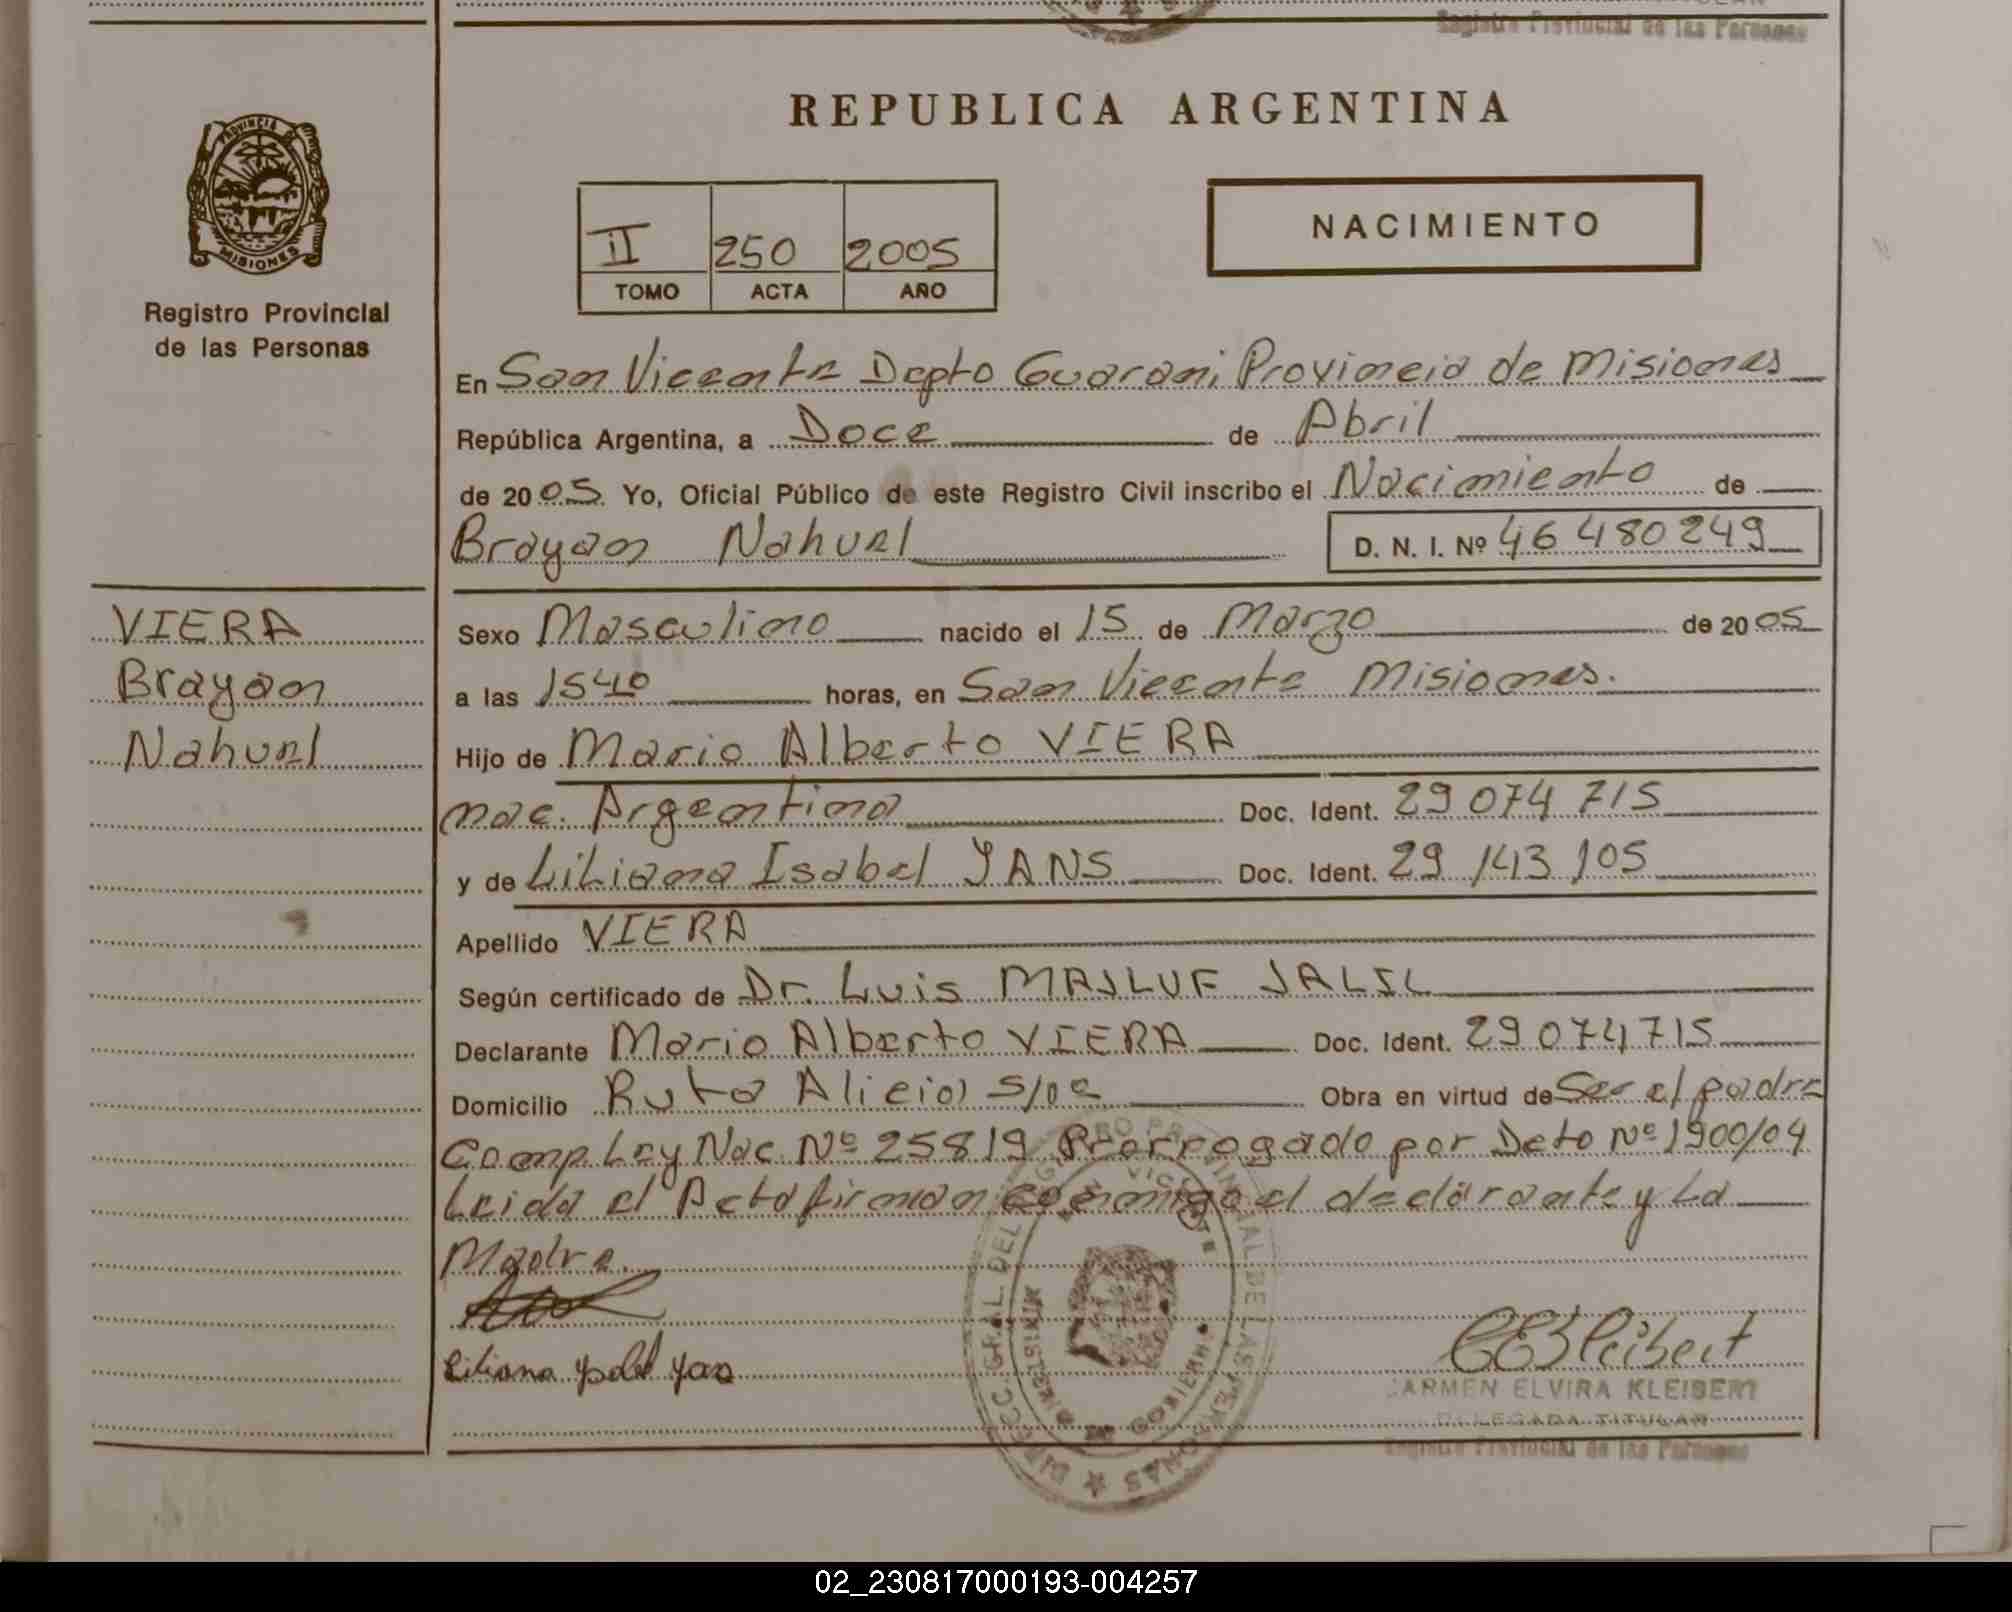 Registro Provincial de las Personas
REPUBLICA ARGENTINA
PROVINCIA DE
MISIONES
Registro Provincial
de las Personas
II 250 2005
TOMO ACTA AÑO
NACIMIENTO
En San Vicente Depto Guarani Provincia de Misiones
República Argentina, a Doce de Abril
de 2005. Yo, Oficial Público de este Registro Civil inscribo el Nacimiento de
Brayan Nahuel D. N. I. Nº 46 480 249
VIERA
Brayan
Nahuel
Sexo Masculino nacido el 15 de Marzo de 2005
a las 1540 horas, en San Vicente Misiones.
Hijo de Mario Alberto VIERA
nac. Argentina Doc. Ident. 29 074 715
y de Liliana Isabel YANS Doc. Ident. 29 143 105
Apellido VIERA
Según certificado de Dr. Luis MAJLUF JALIL
Declarante Mario Alberto VIERA Doc. Ident. 29 074 715
Domicilio Ruta Alicia) Obra en virtud de Ser el padre
Comp. Ley Nac. Nº 25819 Prorrogado por Dcto Nº 1900/04
Leida el Acta firman conmigo el declarante y La
Madre.
Liliana
CEKleibert
CARMEN ELVIRA KLEIBERT
DELEGADA TITULAR
Registro Provincial de las Personas
DIRECC. GRAL. DEL REGISTRO PROVINCIAL DE LAS PERSONAS
SAN VICENTE
MINISTERIO DE GOBIERNO
02_230817000193-004257